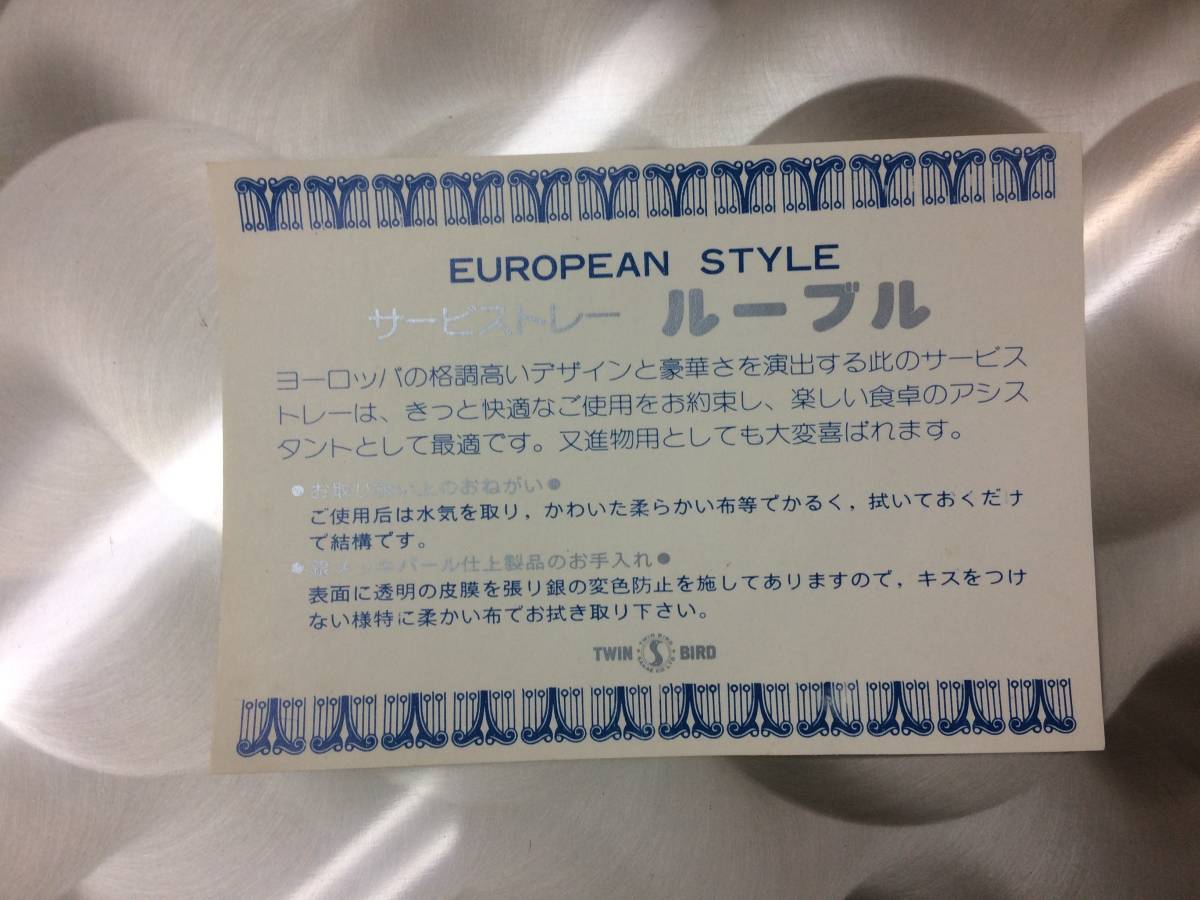 EUROPEAN STYLE
サービストレー ルーブル
ヨーロッパの格調高いデザインと豪華さを演出する此のサービス
トレーは、きっと快適なご使用をお約束し、楽しい食卓のアシス
タントとして最適です。又進物用としても大変喜ばれます。
●お取り扱い上のおねがい●
ご使用后は水気を取り，かわいた柔らかい布等でかるく，拭いておくだけ
で結構です。
●銀メッキパール仕上製品のお手入れ●
表面に透明の皮膜を張り銀の変色防止を施してありますので，キスをつけ
ない様特に柔かい布でお拭き取り下さい。
TWIN S BIRD